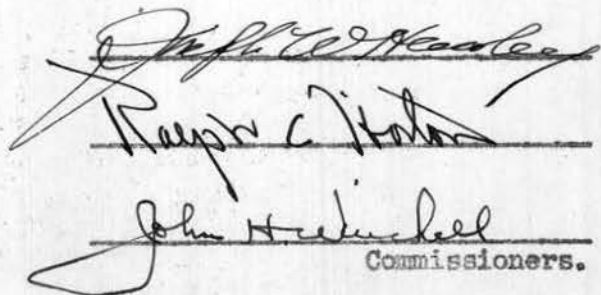 Joseph W Hawley
Ralph C Horton
John H. Winchell
Commissioners.